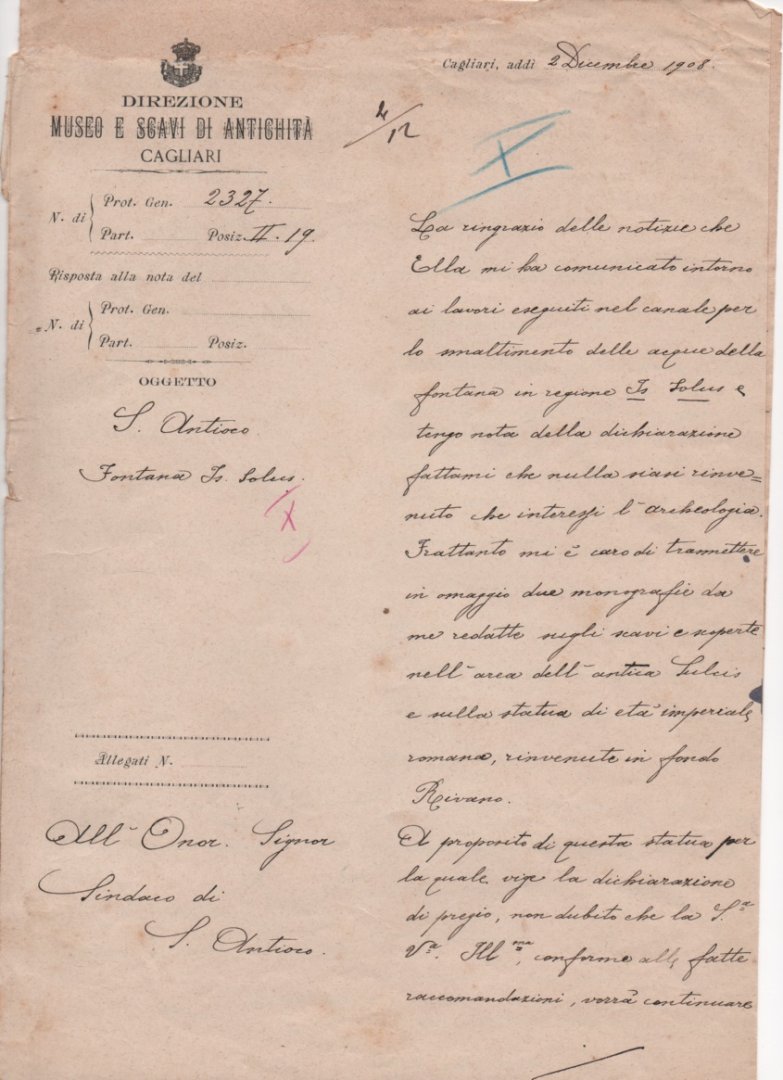 DIREZIONE
MUSEO E SCAVI DI ANTICHITÀ
CAGLIARI
N. di
Prot. Gen. 2327.
Part. Posiz. II-19.
Risposta alla nota del
N. di
Prot. Gen.
Part. Posiz.
OGGETTO
S. Antioco
Fontana Is. Solus.
X
Allegati N.
All' Onor. Signor
Sindaco di
S. Antioco.
Cagliari, addì 2 Dicembre 1908.
4/12
V
La ringrazio delle notizie che
Ella mi ha comunicato intorno
ai lavori eseguiti nel canale per
lo smaltimento delle acque della
fontana in regione Is Solus e
tengo nota della dichiarazione
fattami che nulla siasi rinve=
nuto che interessi l'archeologia.
Frattanto mi è caro di trasmettere
in omaggio due monografie da
me redatte sugli scavi e scoperte
nell'area dell'antica Sulcis
e sulla statua di età imperiale
romana, rinvenute in fondo
Rivano.
A proposito di questa statua per
la quale vige la dichiarazione
di pregio, non dubito che la S.a
V.a Ill.ma, conforme alle fatte
raccomandazioni, vorrà continuare